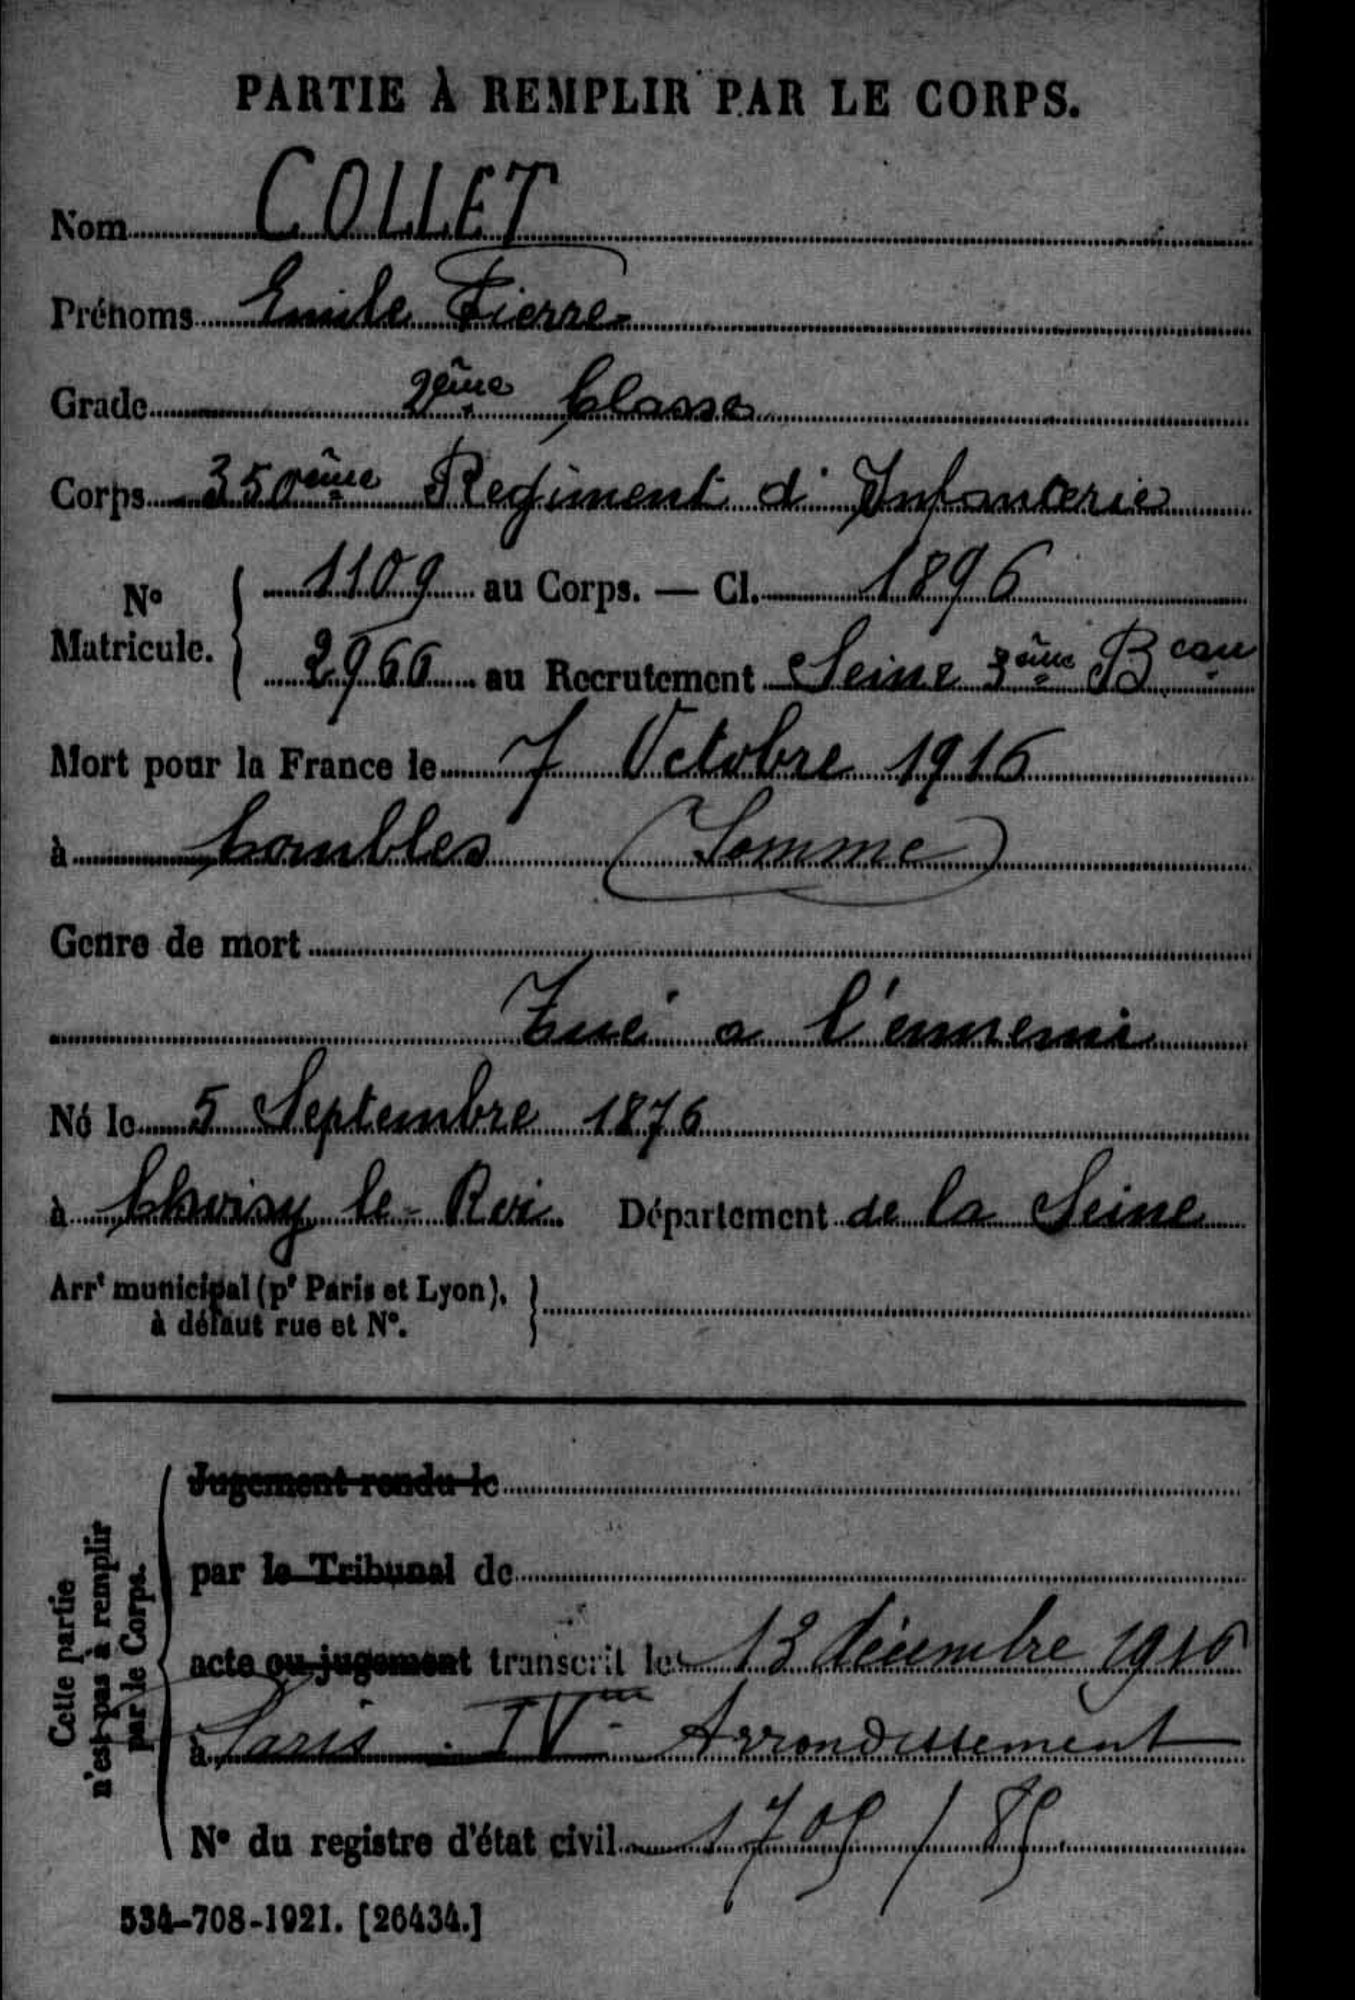 PARTIE À REMPLIR PAR LE CORPS.
Nom COLLET
Prénoms Emile Pierre
Grade 2ème Classe
Corps 350ème Regiment d'Infanterie
No Matricule. { 1109 au Corps. — Cl. 1896
2966 au Recrutement Seine 3ème Beau
Mort pour la France le 7 Octobre 1916
à Combles (Somme)
Genre de mort
Tué a l'ennemi
Né le 5 Septembre 1876
à Choisy le-Roi Département de la Seine
Arrt municipal (pr Paris et Lyon), à défaut rue et No. }
Cette partie n'est pas à remplir par le Corps.
Jugement rendu le
par le Tribunal de
acte ou jugement transcrit le 13 décembre 1916
à Paris. IVme Arrondissement
No du registre d'état civil
534-708-1921. [26434.]